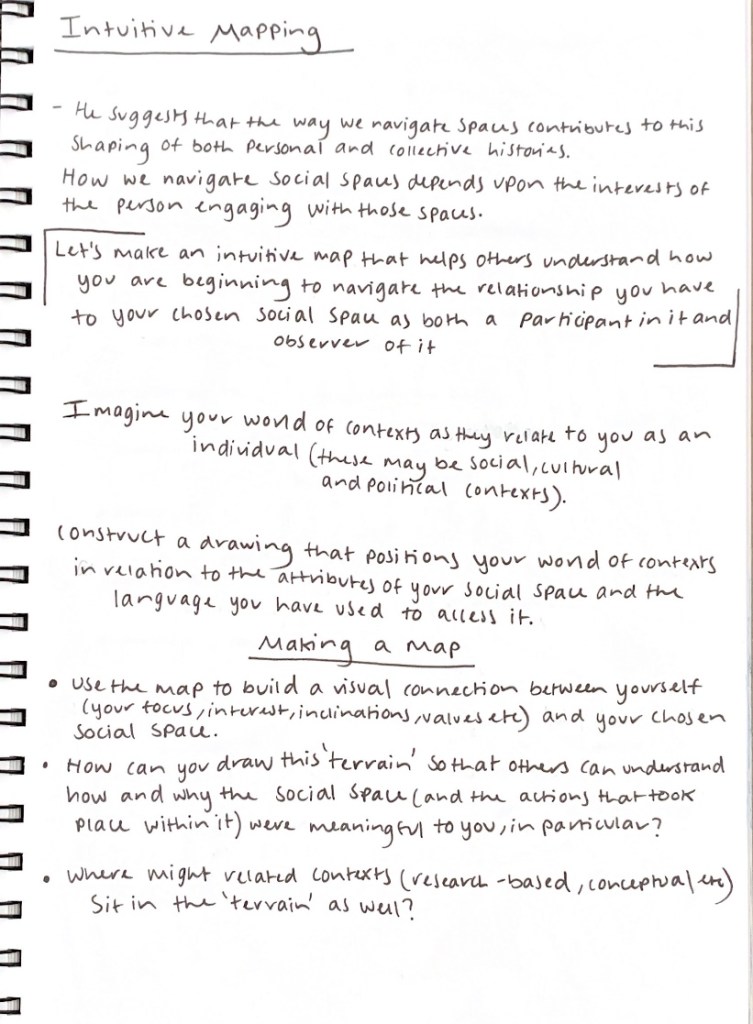 Intuitive Mapping
- He suggests that the way we navigate spaces contributes to this
shaping of both personal and collective histories.
How we navigate social spaces depends upon the interests of
the person engaging with those spaces.
Let's make an intuitive map that helps others understand how
you are beginning to navigate the relationship you have
to your chosen social space as both a participant in it and
observer of it
Imagine your world of contexts as they relate to you as an
individual (these may be social, cultural
and political contexts).
construct a drawing that positions your world of contexts
in relation to the attributes of your social space and the
language you have used to access it.
Making a map
• use the map to build a visual connection between yourself
(your focus, interest, inclinations, values etc) and your chosen
social space.
• How can you draw this 'terrain' so that others can understand
how and why the social space (and the actions that took
place within it) were meaningful to you, in particular?
• where might related contexts (research-based, conceptual etc)
sit in the 'terrain' as well?